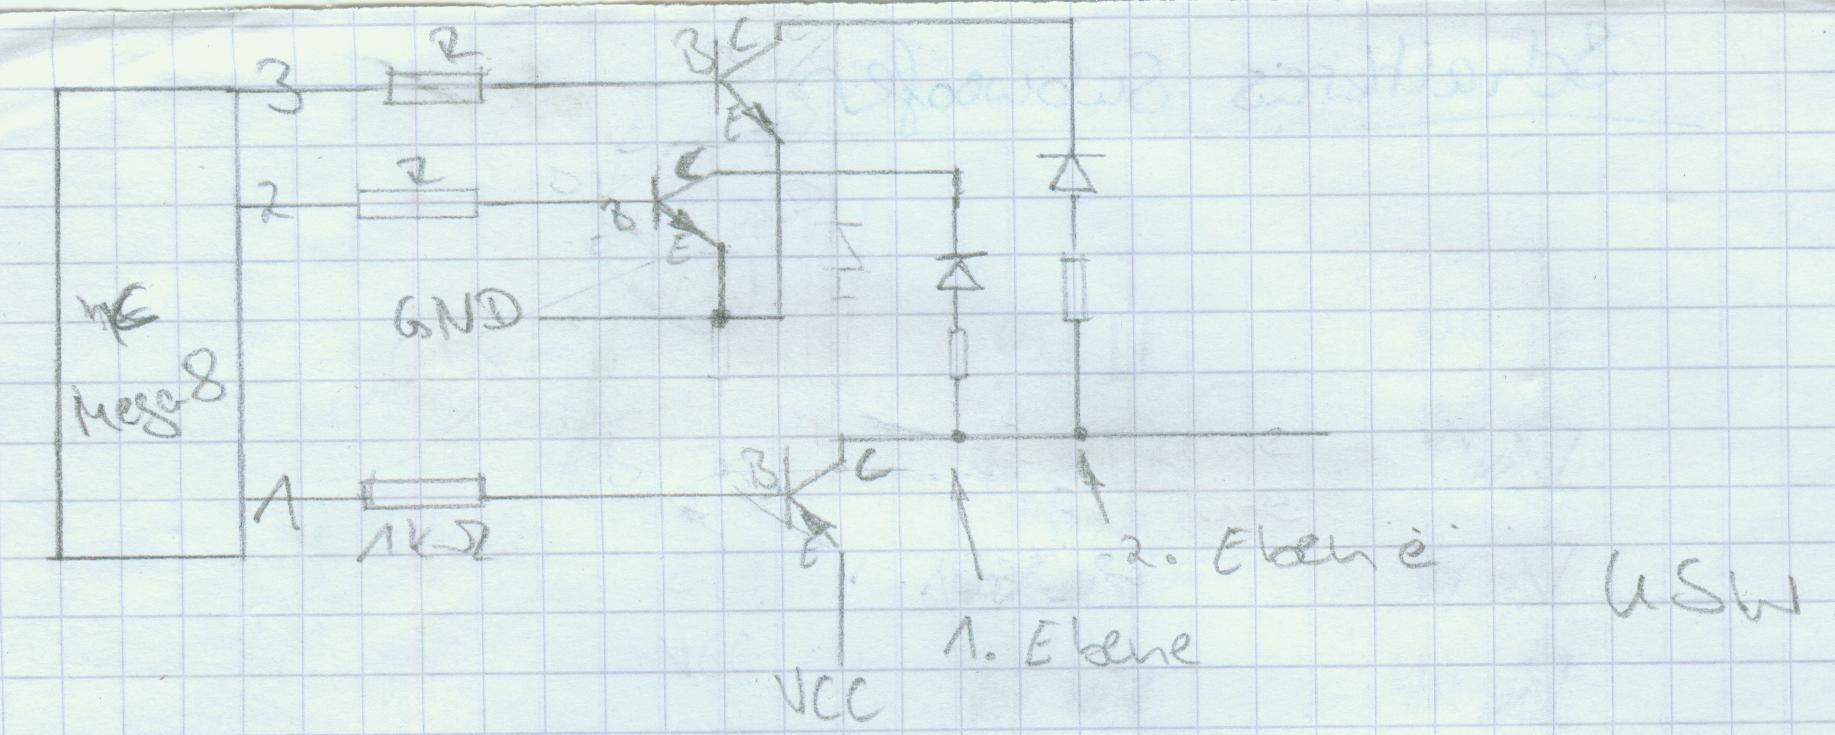 3 R B C
E
2 R B C
E
GND
µC
Mega8
1 1kΩ B C
E
VCC
1. Ebene
2. Ebene
USW